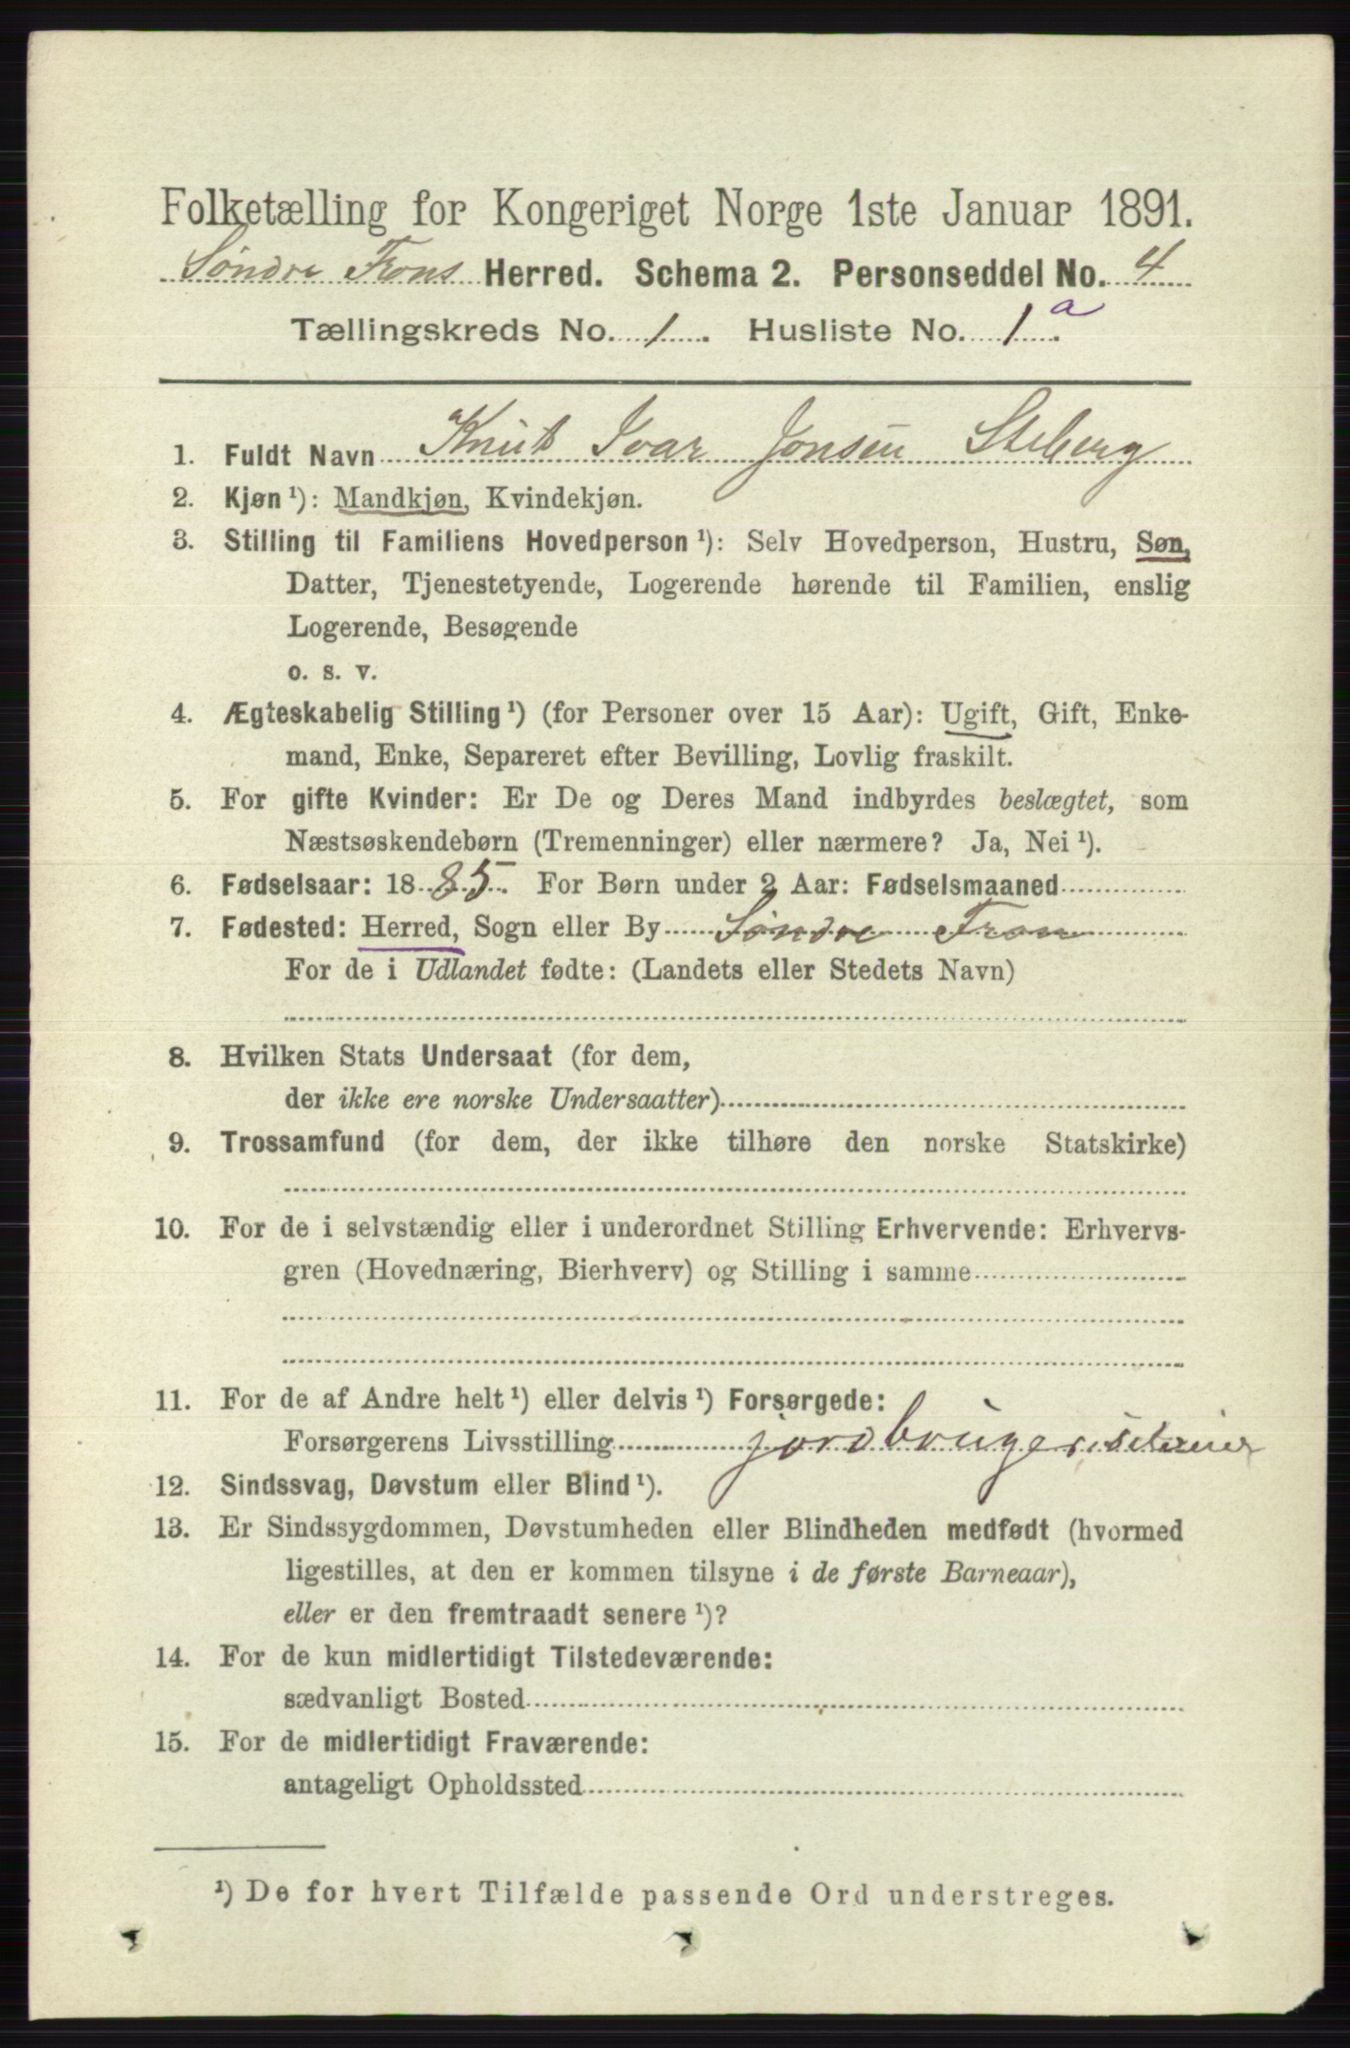 Folketælling for Kongeriget Norge 1ste Januar 1891.
Søndre Frons Herred. Schema 2. Personseddel No. 4
Tællingskreds No. 1. Husliste No. 1 a.
1. Fuldt Navn Knut Ivar Jonsen Steberg
2. Kjøn ¹): Mandkjøn, Kvindekjøn.
3. Stilling til Familiens Hovedperson ¹): Selv Hovedperson, Hustru, Søn,
Datter, Tjenestetyende, Logerende hørende til Familien, enslig
Logerende, Besøgende
o. s. v.
4. Ægteskabelig Stilling ¹) (for Personer over 15 Aar): Ugift, Gift, Enke-
mand, Enke, Separeret efter Bevilling, Lovlig fraskilt.
5. For gifte Kvinder: Er De og Deres Mand indbyrdes beslægtet, som
Næstsøskendebørn (Tremenninger) eller nærmere? Ja, Nei ¹).
6. Fødselsaar: 1885. For Børn under 2 Aar: Fødselsmaaned
7. Fødested: Herred, Sogn eller By Søndre Fron
For de i Udlandet fødte: (Landets eller Stedets Navn)
8. Hvilken Stats Undersaat (for dem,
der ikke ere norske Undersaatter)
9. Trossamfund (for dem, der ikke tilhøre den norske Statskirke)
10. For de i selvstændig eller i underordnet Stilling Erhvervende: Erhvervs-
gren (Hovednæring, Bierhverv) og Stilling i samme
11. For de af Andre helt ¹) eller delvis ¹) Forsørgede:
Forsørgerens Livsstilling jordbruger,
12. Sindssvag, Døvstum eller Blind ¹).
13. Er Sindssygdommen, Døvstumheden eller Blindheden medfødt (hvormed
ligestilles, at den er kommen tilsyne i de første Barneaar),
eller er den fremtraadt senere ¹)?
14. For de kun midlertidigt Tilstedeværende:
sædvanligt Bosted
15. For de midlertidigt Fraværende:
antageligt Opholdssted
¹) De for hvert Tilfælde passende Ord understreges.